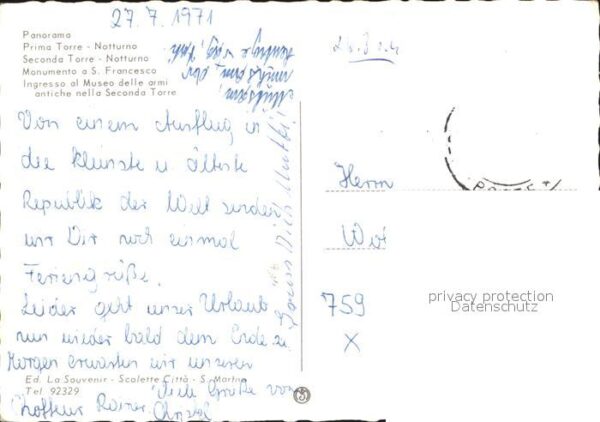 27. 7. 1971
Panorama
Prima Torre - Notturno
Seconda Torre - Notturno
Monumento a S. Francesco
Ingresso al Museo delle armi
antiche nella Seconda Torre
Von einem Ausflug in
die kleinste u. älteste
Republik der Welt senden
wir Dir noch einmal
Feriengrüße.
Leider geht unser Urlaub
nun wieder bald dem Ende zu
Morgen erwarten wir unseren
Choffeur Rainer.
Viele Grüße von
Christel
Mühsam,
mühsam, der
Dich Mutti!
Ed. La Souvenir - Scalette Città - S. Marino
Tel. 92329
Herrn
759
X
privacy protection
Datenschutz